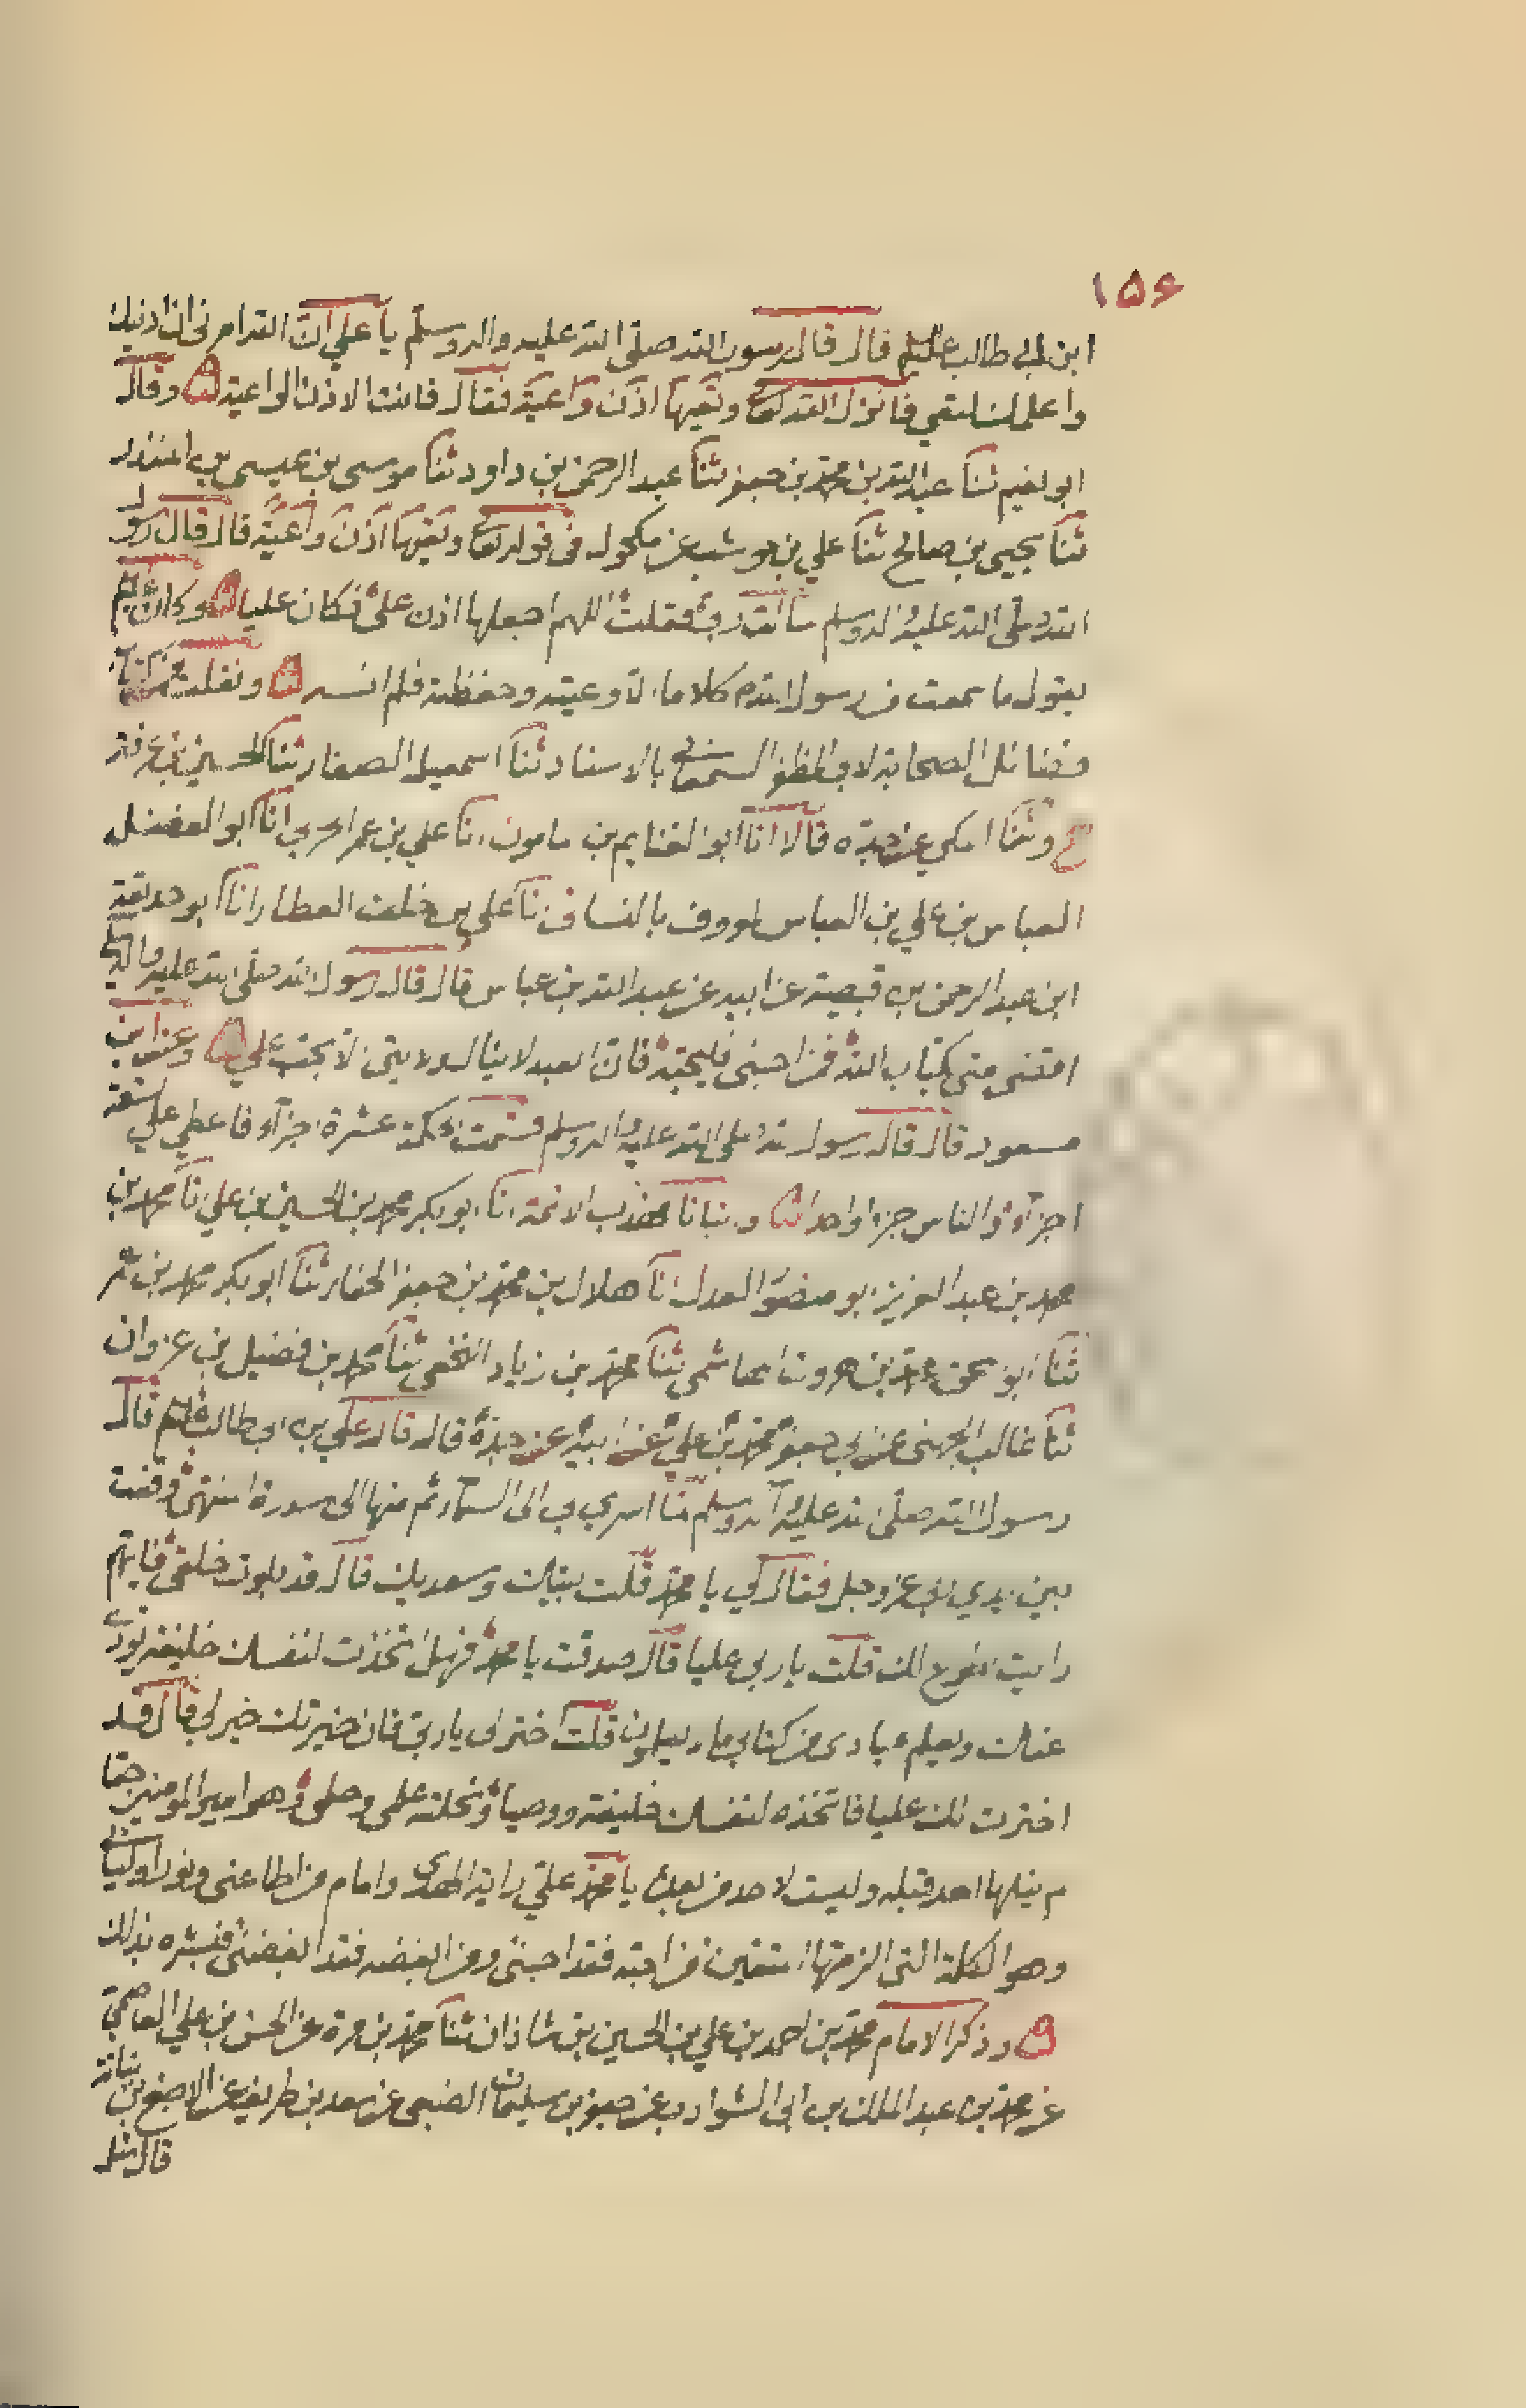 ١٥٦
ابن ابي طالب عليلم قال قال رسول الله صلى الله عليه واله وسلم يا علي ان الله امرني ان ادنيك
واعلمك لتعي فانزل الله تع وتعيها اذن واعية فقال فانت الاذن الواعية وقال
ابو نعيم ثنا عبد الله بن محمد بن جعفر ثنا عبد الرحمن بن داود ثنا موسى بن عيسى بن المنذر
ثنا يحيى بن صالح ثنا علي بن حوشب عن مكحول في قوله تع وتعيها اذن واعية قال قال رسول
الله صلى الله عليه واله وسلم سالت ربي فقلت اللهم اجعلها اذن علي فكان علي وكان
يقول ما سمعت من رسول الله كلاما الا وعيته وحفظته فلم انسه ونقلت من كتاب
فضائل الصحابة لابي المظفر السمعاني بالاسناد ثنا اسمعيل الصفار ثنا الحسين بن عرفة
ح وثنا المكي عن جده قالا انا ابو الغنايم بن مامون انا علي بن عمر الحربي انا ابو الفضل
العباس بن علي بن العباس المعروف بالنسائي نا علي بن خلف العطار انا ابو حذيفة
ابن عبد الرحمن بن قبيصة عن ابيه عن عبد الله بن عباس قال قال رسول الله صلى الله عليه واله وسلم
مني كتاب الله فمن احبني فليحبه فان العبد لا ينال ولايتي الا بحب علي وعن ابن
مسعود قال قال رسول الله صلى الله عليه واله وسلم قسمت الحكمة عشرة اجزآء فاعطي علي تسعة
اجزآء والناس جزءا واحدا وانبانا مهذب الائمة انا ابو بكر محمد بن الحسين بن علي نا محمد بن
محمد بن عبد العزيز ابو منصور العدل انا هلال بن محمد بن جعفر الحفار ثنا ابو بكر محمد بن عمر
ثنا ابو اسحق محمد بن هرون الهاشمي ثنا محمد بن زياد النخعي ثنا محمد بن فضيل بن غزوان
ثنا غالب الجهني عن ابي جعفر محمد بن علي عن ابيه عن جده قال قال علي بن ابي طالب قال
رسول الله صلى الله عليه واله وسلم لما اسري بي الى السمآء ثم منها الى سدرة المنتهى وقفت
بين يدي ربي عز وجل فقال لي يا محمد قلت لبيك وسعديك قال قد بلوت خلقي فايهم
رايت اطوع لك قلت يا ربي عليا قال صدقت يا محمد فهل اتخذت لنفسك خليفة يودي
عنك ويعلم عبادي من كتابي ما لا يعلمون قلت اختر لي يا ربي فان خيرتك خير لي قال قد
اخترت لك عليا فاتخذه لنفسك خليفة ووصيا ونحلته علمي وحلمي وهو امير المومنين حقا
لم ينلها احد قبله وليست لاحد من بعده يا محمد علي راية الهدى وامام من اطاعني ونور اوليائي
وهو الكلمة التي الزمتها المتقين من احبه فقد احبني ومن ابغضه فقد ابغضني فبشره بذلك
وذكر الامام محمد بن احمد بن علي بن الحسين بن شاذان ثنا محمد بن مرة عن الحسن بن علي العاصمي
عن محمد بن عبد الملك بن ابي الشوارب عن جعفر بن سليمان الضبعي عن سعد بن طريف عن الاصبغ بن نباتة
قال سئل